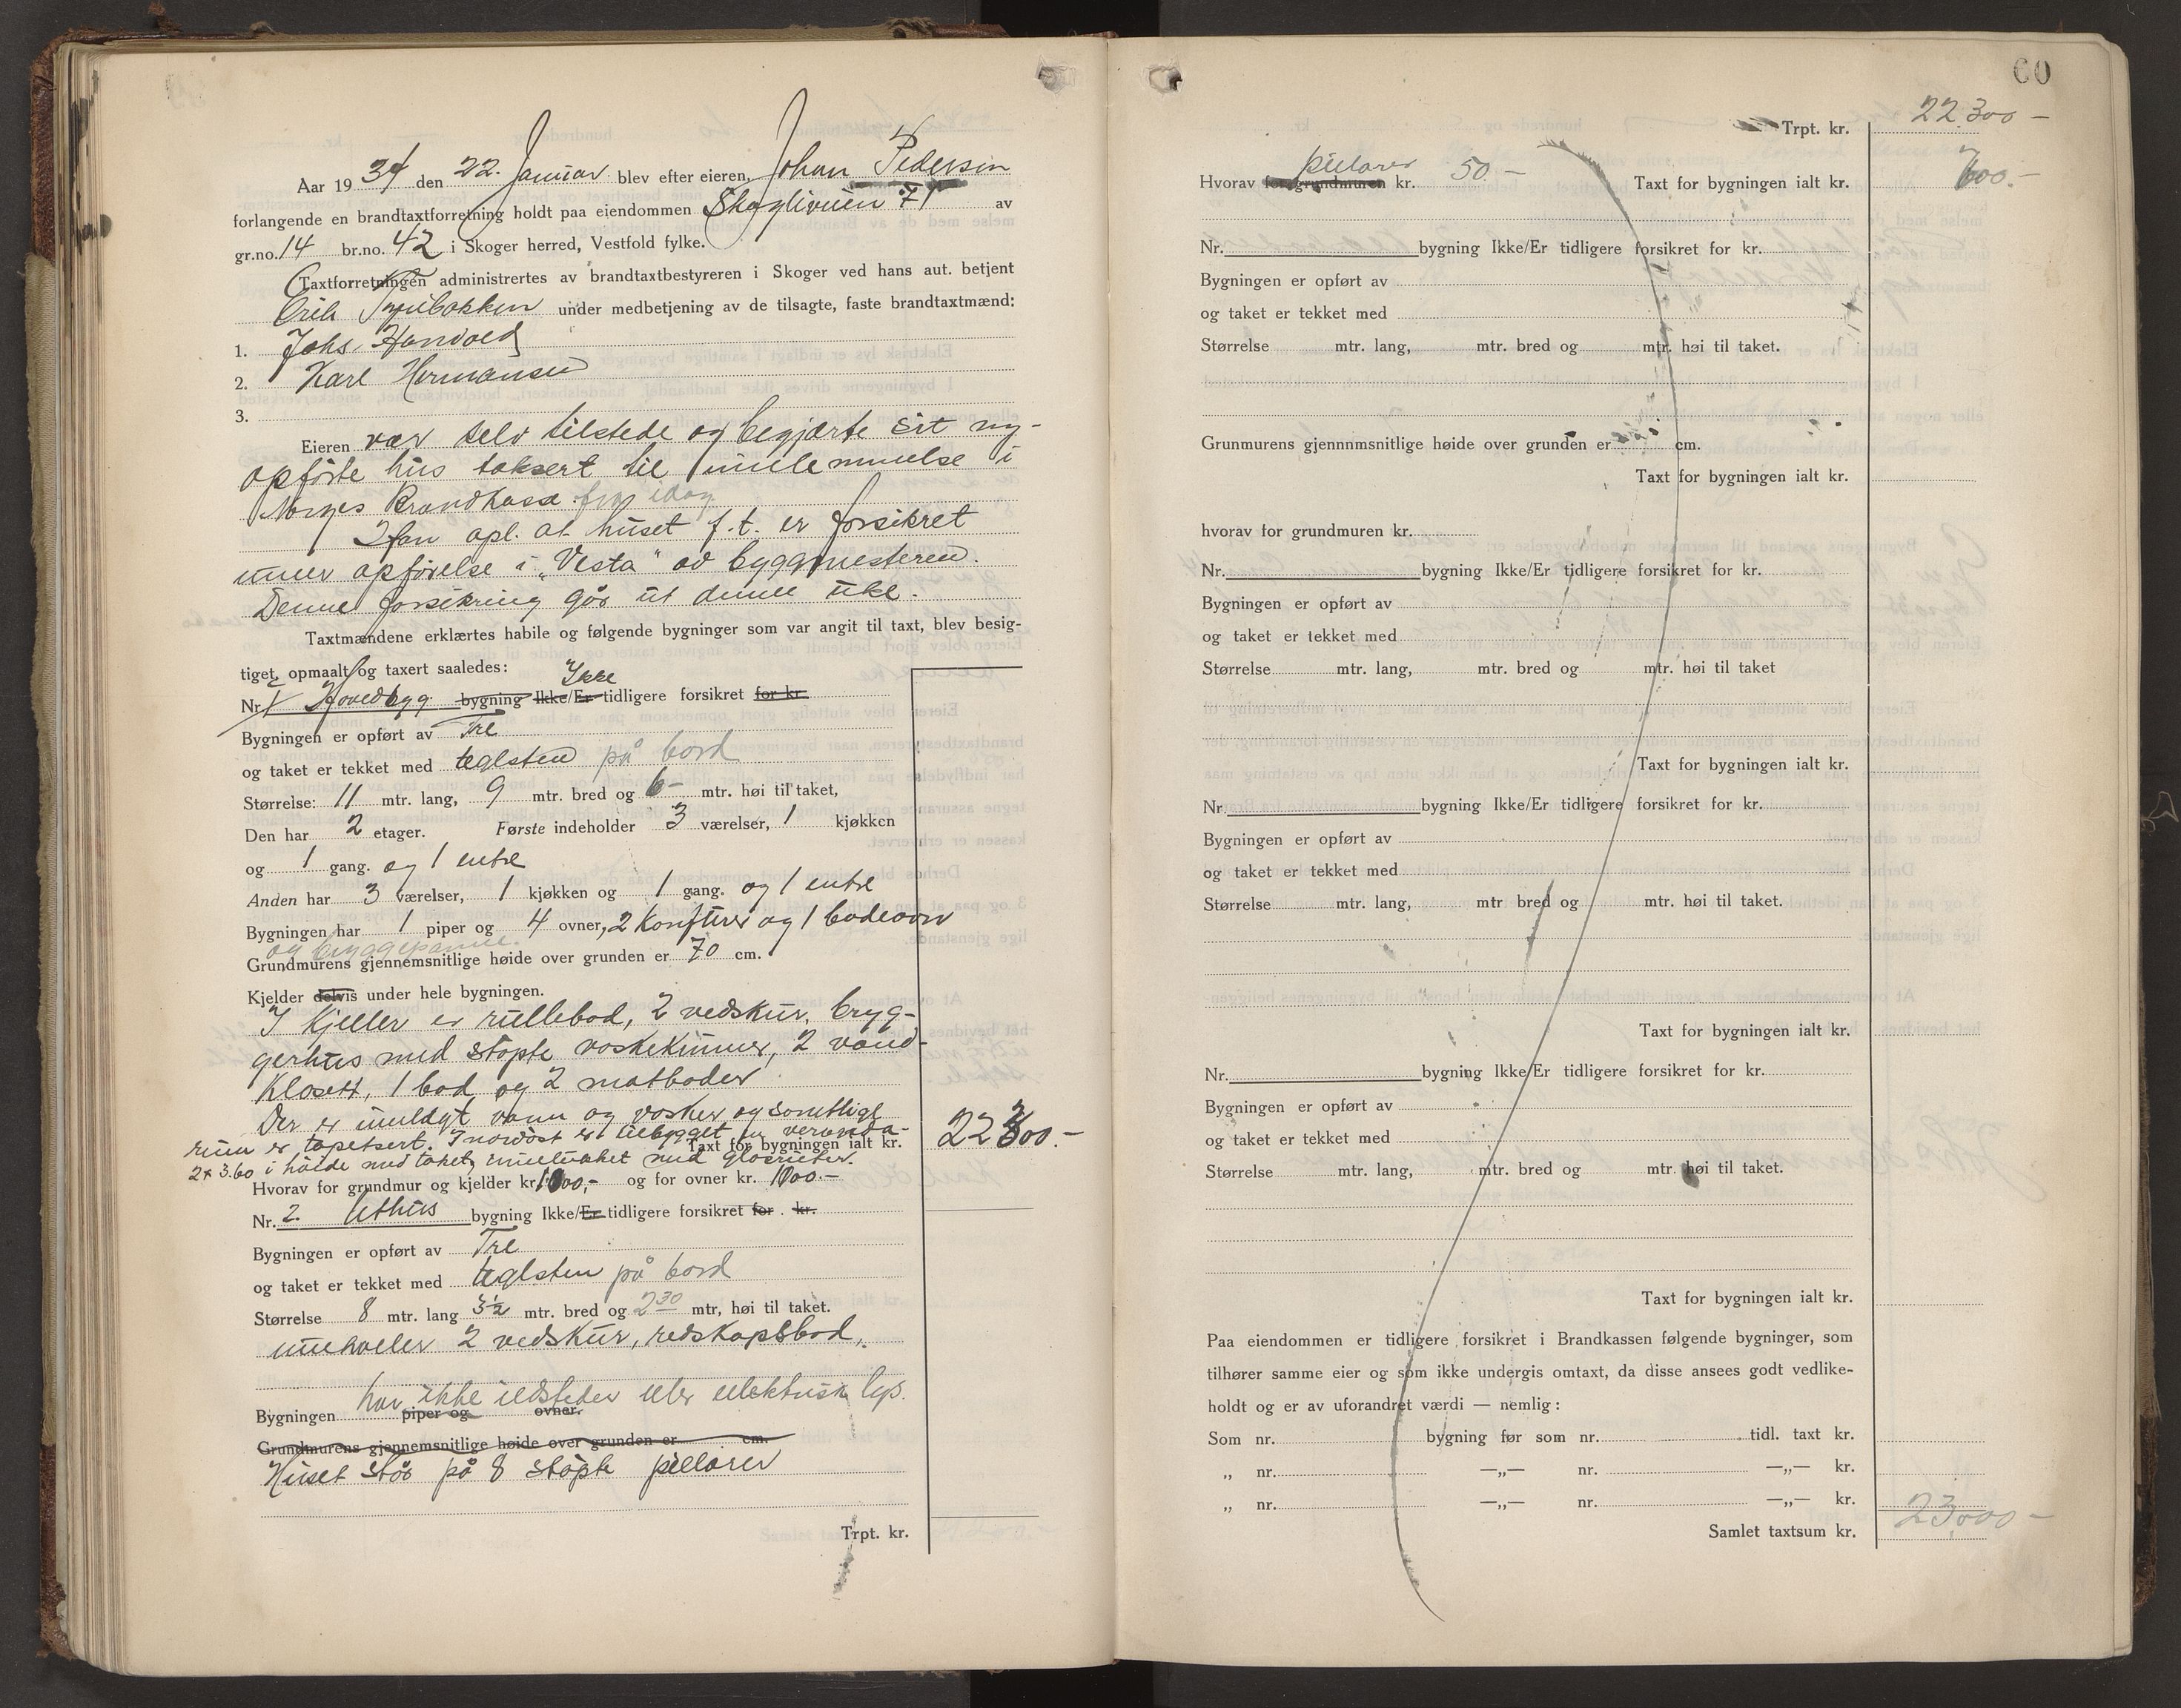 Aar 1934 den 22. Januar blev efter eieren, Johan Pedersen
forlangende en brandtaxtforretning holdt paa eiendommen Skogliveien 71 av
gr.no. 14 br.no. 42 i Skoger herred, Vestfold fylke.
Taxtforretningen administrertes av brandtaxtbestyreren i Skoger ved hans aut. betjent
under medbetjening av de tilsagte, faste brandtaxtmænd:
1. Johs. Hanvold
2. Karl Hermansen
3.
Eieren var selv tilstede og begjærte sit ny-
opførte hus taksert til innlemmelse i
Norges Brandkasse fra idag
Han opl. at huset f.t. er forsikret
unner opførelse i „Vesta" av byggmesteren.
Denne forsikring går ut denne uke.
Taxtmændene erklærtes habile og følgende bygninger som var angit til taxt, blev besig-
tiget, opmaalt og taxert saaledes:
Nr. 1 Hovedbygg. bygning Ikke/Er Ikke tidligere forsikret for kr.
Bygningen er opført av Tre
og taket er tekket med teglsten på bord
Størrelse: 11 mtr. lang, 9 mtr. bred og 6- mtr. høi til taket,
Den har 2 etager. Første indeholder 3 værelser, 1 kjøkken
og 1 gang. og 1 entre
Anden har 3 værelser, 1 kjøkken og 1 gang. og 1 entre
Bygningen har 1 piper og 4 ovner, 2 Komfurer og 1 badeovn
og bryggepanne.
Grundmurens gjennemsnitlige høide over grunden er 70 cm.
Kjelder delvis under hele bygningen.
I Kjeller er rullebod, 2 vedskur, bryg-
gerhus med støpte vaskekummer, 2 vand-
klosett, 1 bod og 2 matboder
Der er innlagt vann og vasker og samtlige
rum er tapetsert. I nordøst er tilbygget en veranda-
Taxt for bygningen ialt kr. 22300.-
2 x 3.60 i høide med taket, innelukket med glasruter.
Hvorav for grundmur og kjelder kr. 1000,- og for ovner kr. 1000.-
Nr. 2. Uthus bygning Ikke/Er tidligere forsikret for kr.
Bygningen er opført av Tre
og taket er tekket med teglsten på bord
Størrelse 8 mtr. lang 3½ mtr. bred og 2 30 mtr, høi til taket.
inneholder 2 vedskur, redskapsbod,
har ikke ildsteder eller elektrisk lys.
Bygningen piper og ovner.
Grundmurens gjennemsnitlige høide over grunden er cm.
Huset står på 8 støpte pillarer
Trpt. kr.
60
Trpt. kr. 22300-
Hvorav for grundmuren pillarer kr. 50- Taxt for bygningen ialt kr. 700.-
Nr. bygning Ikke/Er tidligere forsikret for kr.
Bygningen er opført av
og taket er tekket med
Størrelse mtr. lang, mtr. bred og mtr. høi til taket.
Grunmurens gjennnmsnitlige høide over grunden er cm.
Taxt for bygningen ialt kr.
hvorav for grundmuren kr.
Nr. bygning Ikke/Er tidligere forsikret for kr.
Bygningen er opført av
og taket er tekket med
Størrelse mtr. lang, mtr. bred og mtr. høi til taket
Taxt for bygningen ialt kr.
Nr. bygning Ikke/Er tidligere forsikret for kr.
Bygningen er opført av
og taket er tekket med
Størrelse mtr. lang, mtr bred og mtr. høi til taket.
Taxt for bygningen ialt kr.
Nr. bygning Ikke/Er tidligere forsikret for kr.
Bygningen er opført av
og taket er tekket med
Størrelse mtr. lang, mtr. bred og mtr. høi til taket.
Taxt for bygningen ialt kr.
Paa eiendommen er tidligere forsikret i Brandkassen følgende bygninger, som
tilhører samme eier og som ikke undergis omtaxt, da disse ansees godt vedlike-
holdt og er av uforandret værdi — nemlig:
Som nr. bygning før som nr. tidl. taxt kr.
„ nr. —„— nr. —„— kr.
„ nr. —„— nr. —„— kr.
Samlet taxtsum kr. 23000-